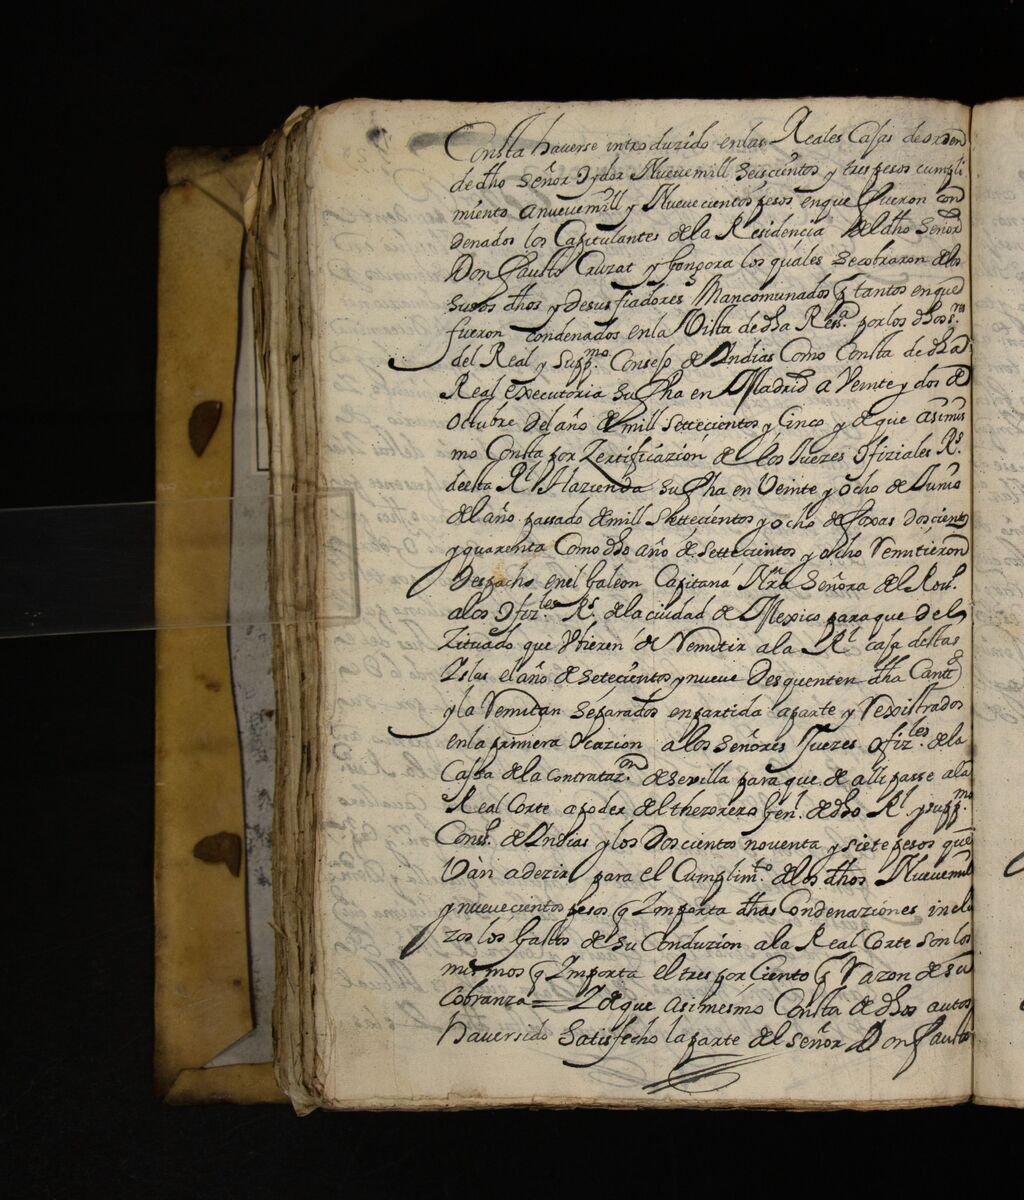 Consta hauerse introduzido enlas Reales Casas de orden
de dho Señor Oydor Nuevemill Seiscientos y tres pesos cumpli-
miento anuevemill y Nuevecientos pesos enque fueron con
denados los Capitulantes de la Residencia del dho Señor
Don Fausto Cruzat y Gongora los quáles secobraron de los
susos dhos y desus fiadores Mancomunados q tantos enque
fueron condenados enla Vista de dha Resª. por los dhos s.res
del Real y Supp.mo Consejo de Yndias Como Consta de dha
Real executoria su fha en Madrid a Veinte y dos de
Octubre del año de mill settecientos y Cinco y de que asimis
mo Consta por Zertificazion de los Juezes Ofiziales R.s
deesta R.l Hazienda su fha en Veinte y ocho de Junio
del año passado de mill Settecientos y ocho de foxas doscientos
y quarenta Como dho año de settecientos y ocho Remitieron
Despacho enel Galeon Capitana Nra Señora del Ros.o
alos Ofiz.les R.s de la ciudad de Mexico paraque del
Zituado que Vbieren de Remitir ala R.l casa destas
Yslas el año de setecientos y nueve Desquenten dha Cantd
y la Remitan separados enpartida aparte y Rexistrados
enla primera Ocazion alos señores Juezes Ofiz.les de la
Casa de la Contrataz.on de sevilla para que de alli passe ala
Real Corte apoder del thezorero Gen.l de dho R.l y supp.mo
Cons.o de Yndias y los Doscientos noventa y siete pesos que
Ván adezir para el Cumplim.to de los dhos Nuevemill
y nuevecientos pesos q Ymporta dhas Condenaziónes inclu
zos los gastos de su Conduzion ala Real Corte son los
mismos q Ymporta el tres por Ciento q Razon de su
Cobranza = Y de que asimesmo Consta de dhos autos
haversido satisfecho la parte del señor Don Fausto